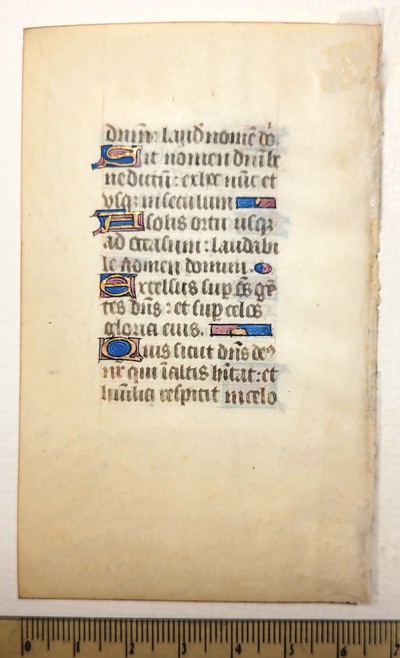 dnm̄: laud̄ nomē dn̄i.
Sit nomen dn̄i be
nedictū: ex hoc nūc et
usq; in seculum
A solis ortu usq;
ad occasum: laudabi
le nomen domini.
Excelsus sup oēs gē
tes dn̄s: et sup celos
gloria eius.
Quis sicut dn̄s deꝰ
nr̄ qui ī altis hītat: et
humilia respicit in celo
0 1 2 3 4 5 6 7